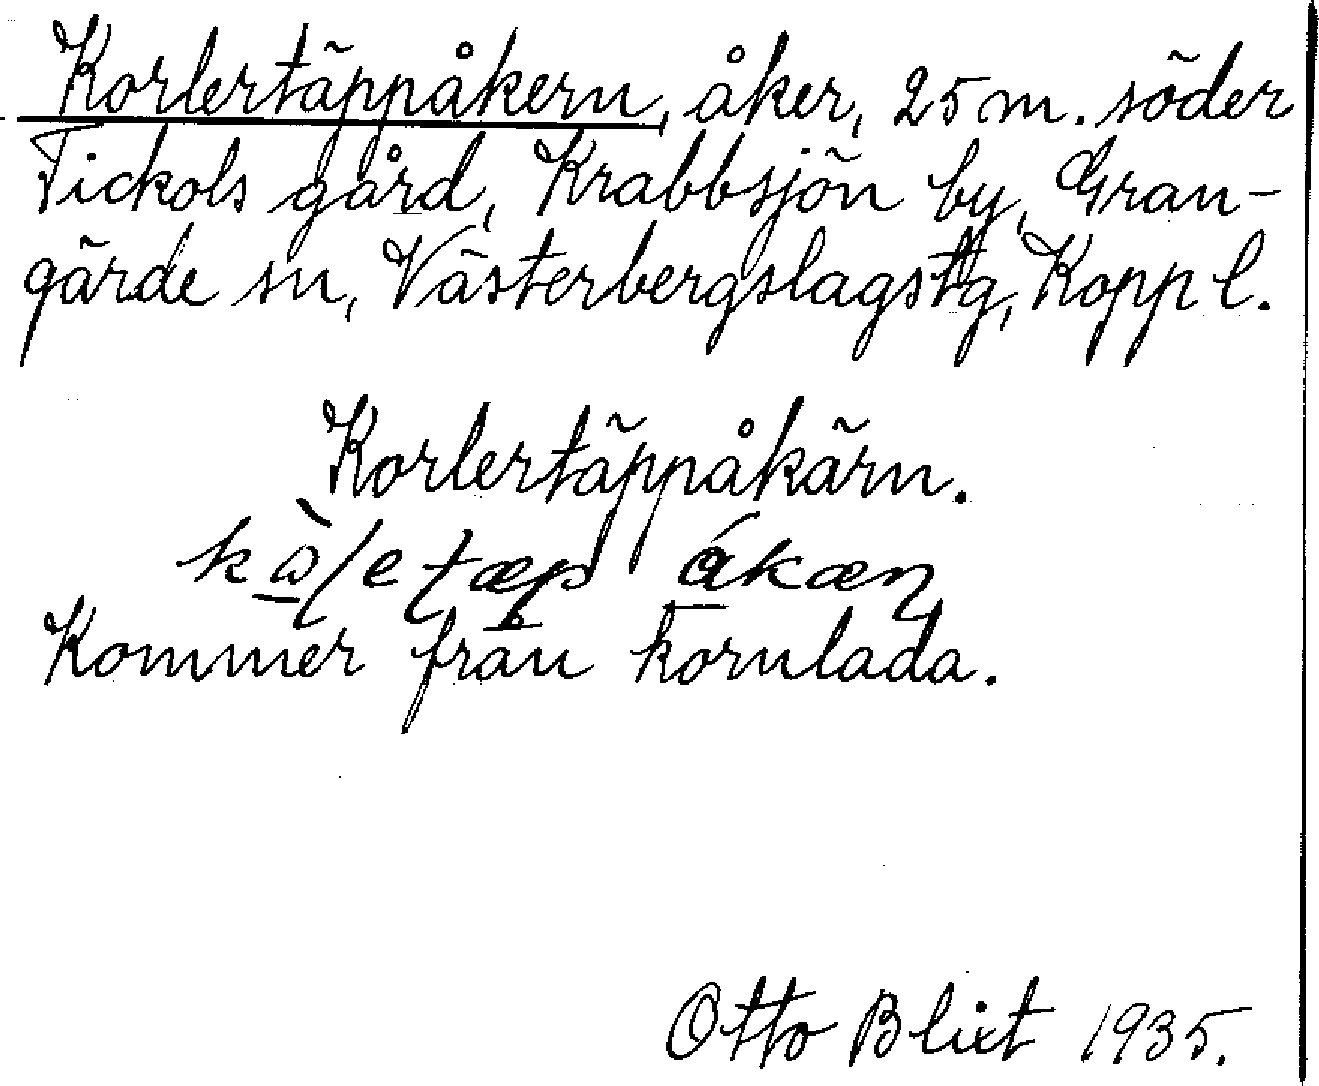 Korlertäppåkern, åker, 25 m. söder
Tickols gård, Krabbsjön by, Gran-
gärde sn, Västerbergslagstg, Kopp l.
Korlertäppåkärn.
Kommer från kornlada.
Otto Blixt 1935.